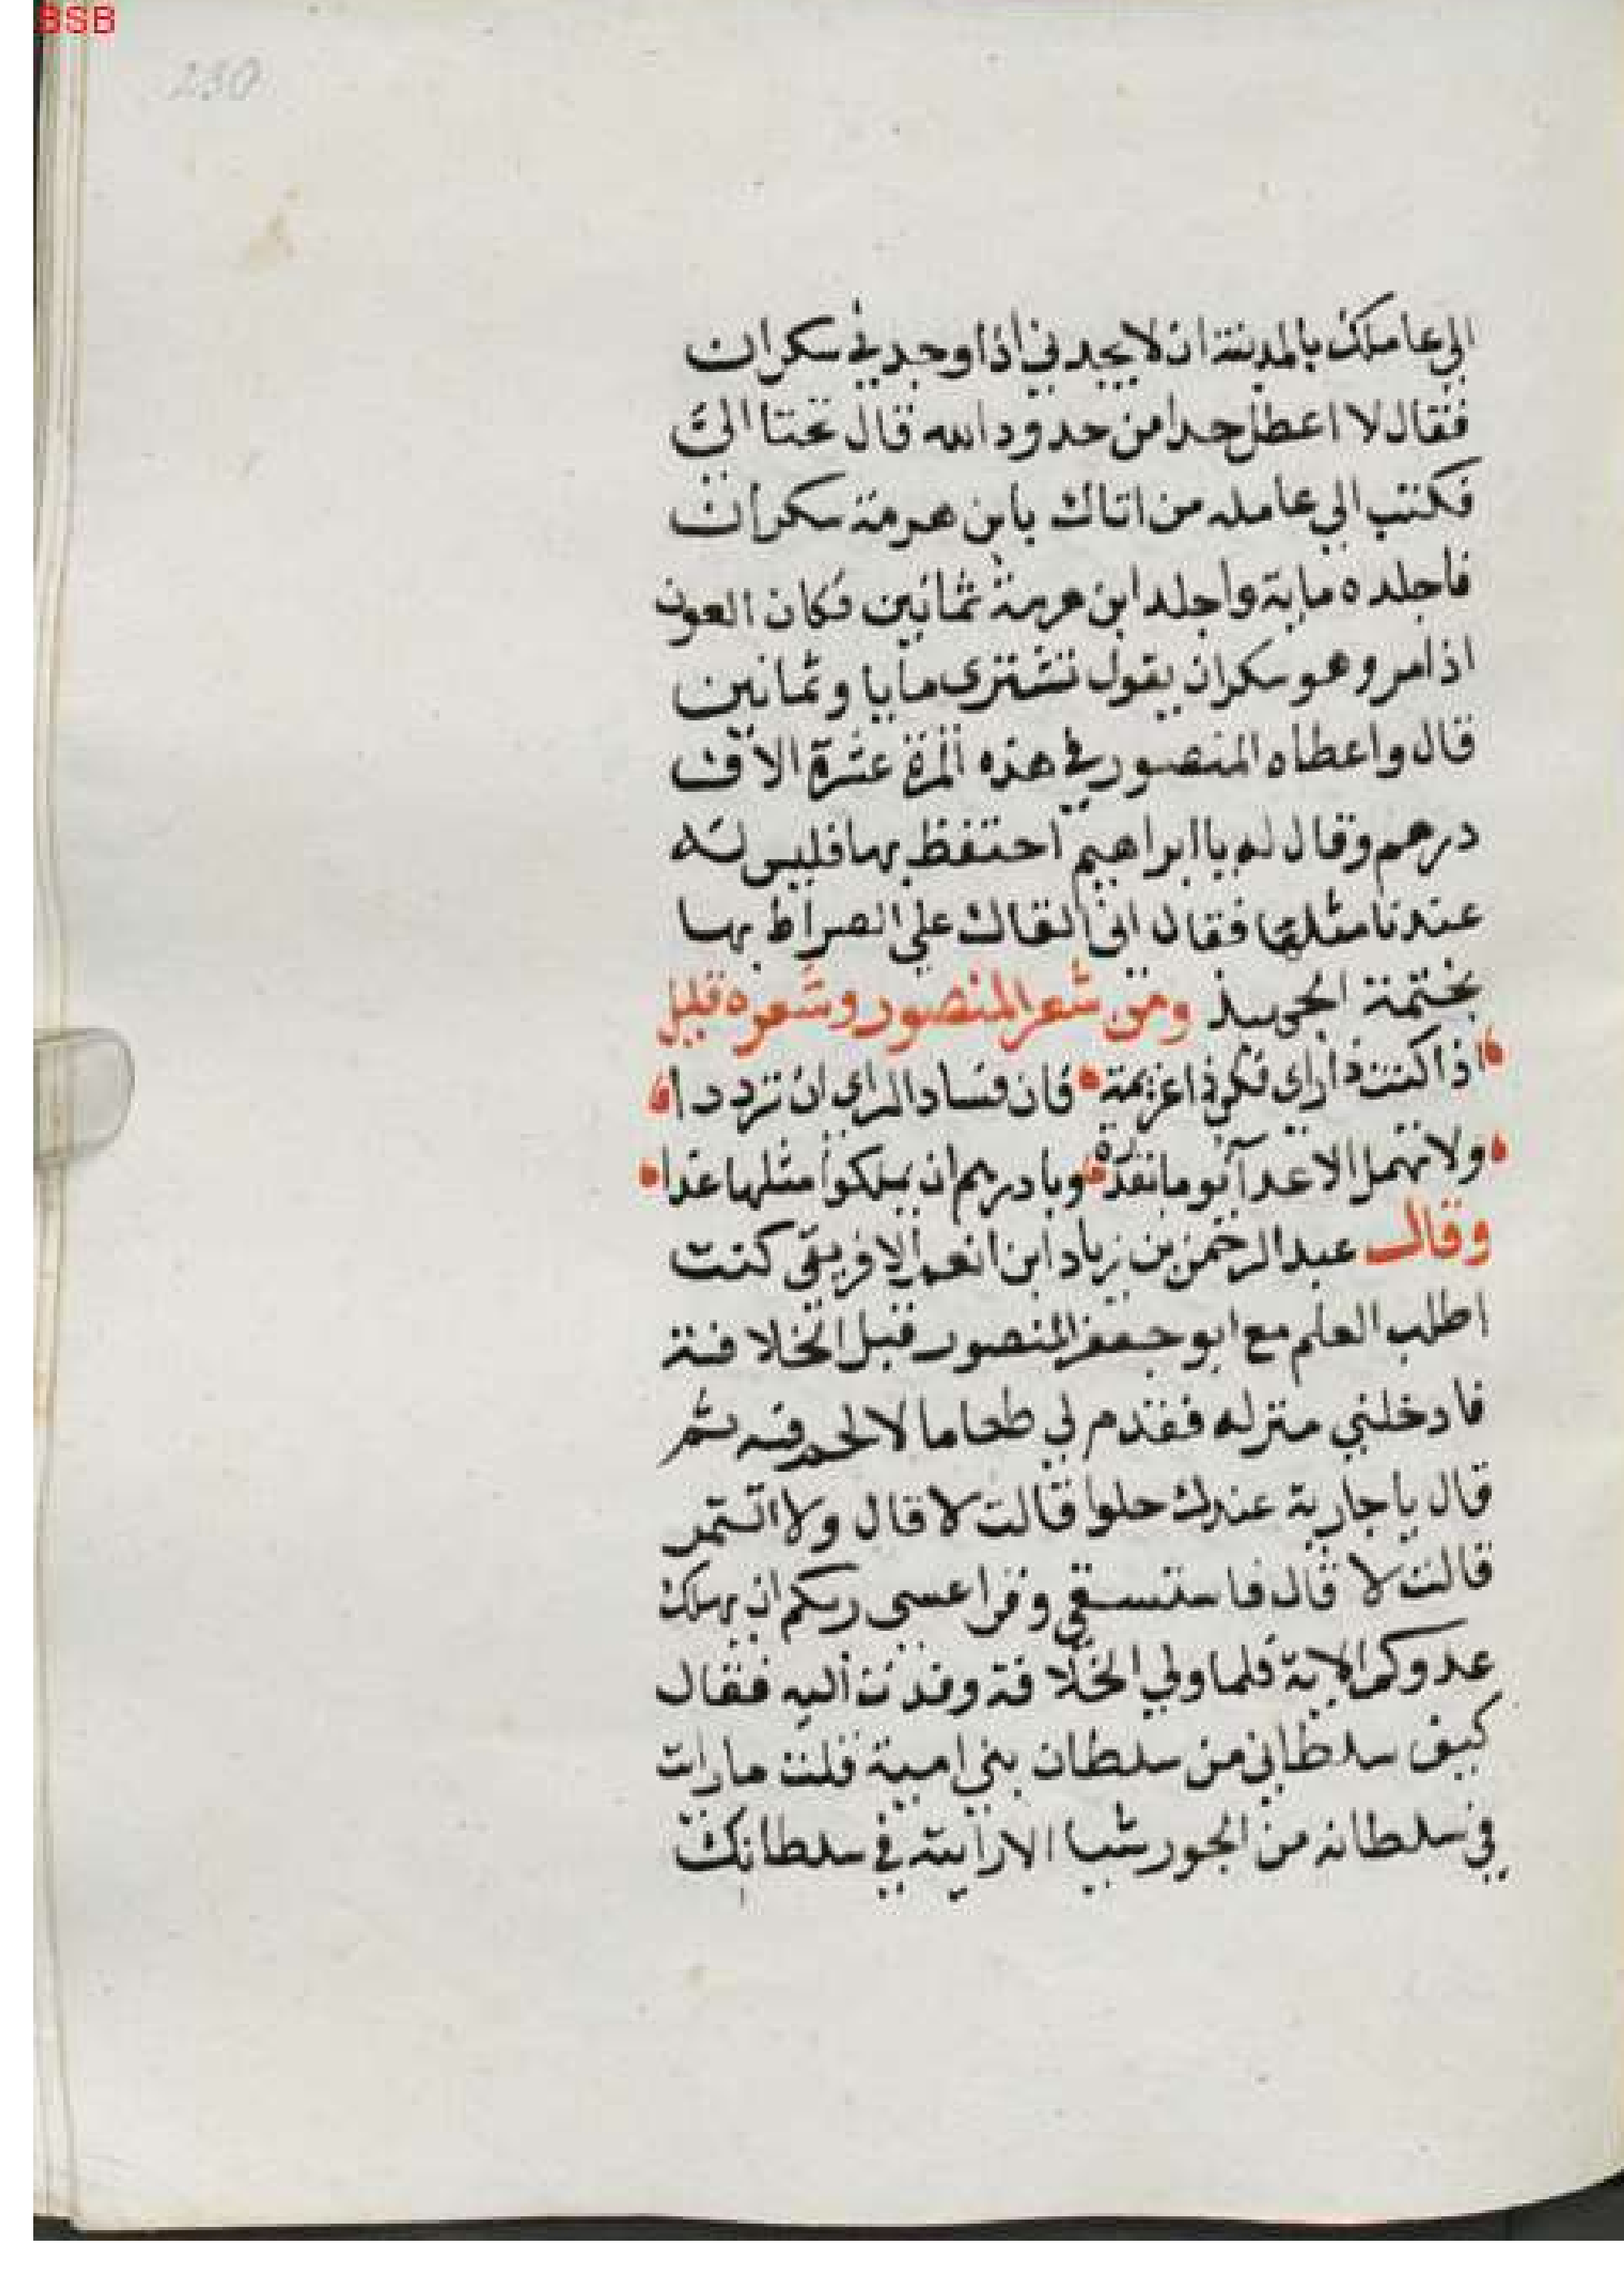 BSB
230
الي عاملك بالمدينة ان لا يحدني اذا وجدني سكران
فقال لا اعطل حدا من حدود الله قال تحتال لي
فكتب الي عامله من اتاك بابن هرمة سكران
فاجلده ماية واجلد ابن هرمة ثمانين فكان العون
اذا مر وهو سكران يقول تشترى مايا وثمانين
قال واعطاه المنصور في هذه المرة عشرة الاف
درهم وقال له يا ابراهيم احتفظ بها فليس له
عندنا مثلها فقال انى القاك علي الصراط بها
بختمة الجهبذ ومن شعر المنصور وشعره قليل
اذا كنت ذا راى فكن ذا عزيمة فان فساد الراى ان تزددا
ولا تمهل الاعداء يوما بقدرة وبادرهم ان يملكوا مثلها غدا
وقال عبد الرحمن بن زياد ابن انعم الافريقى كنت
اطلب العلم مع ابو جعفر المنصور قبل الخلافة
فادخلني منزله فقدم لي طعاما لا لحم فيه ثم
قال يا جارية عندك حلوا قالت لا قال ولا التمر
قالت لا قال فاستسقى وقرا عسى ربكم ان يهلك
عدوكم الاية فلما ولي الخلافة وفدت اليه فقال
كيف سلطاني من سلطان بني امية قلت ما رات
في سلطانه من الجور شيا الا رايته في سلطانك